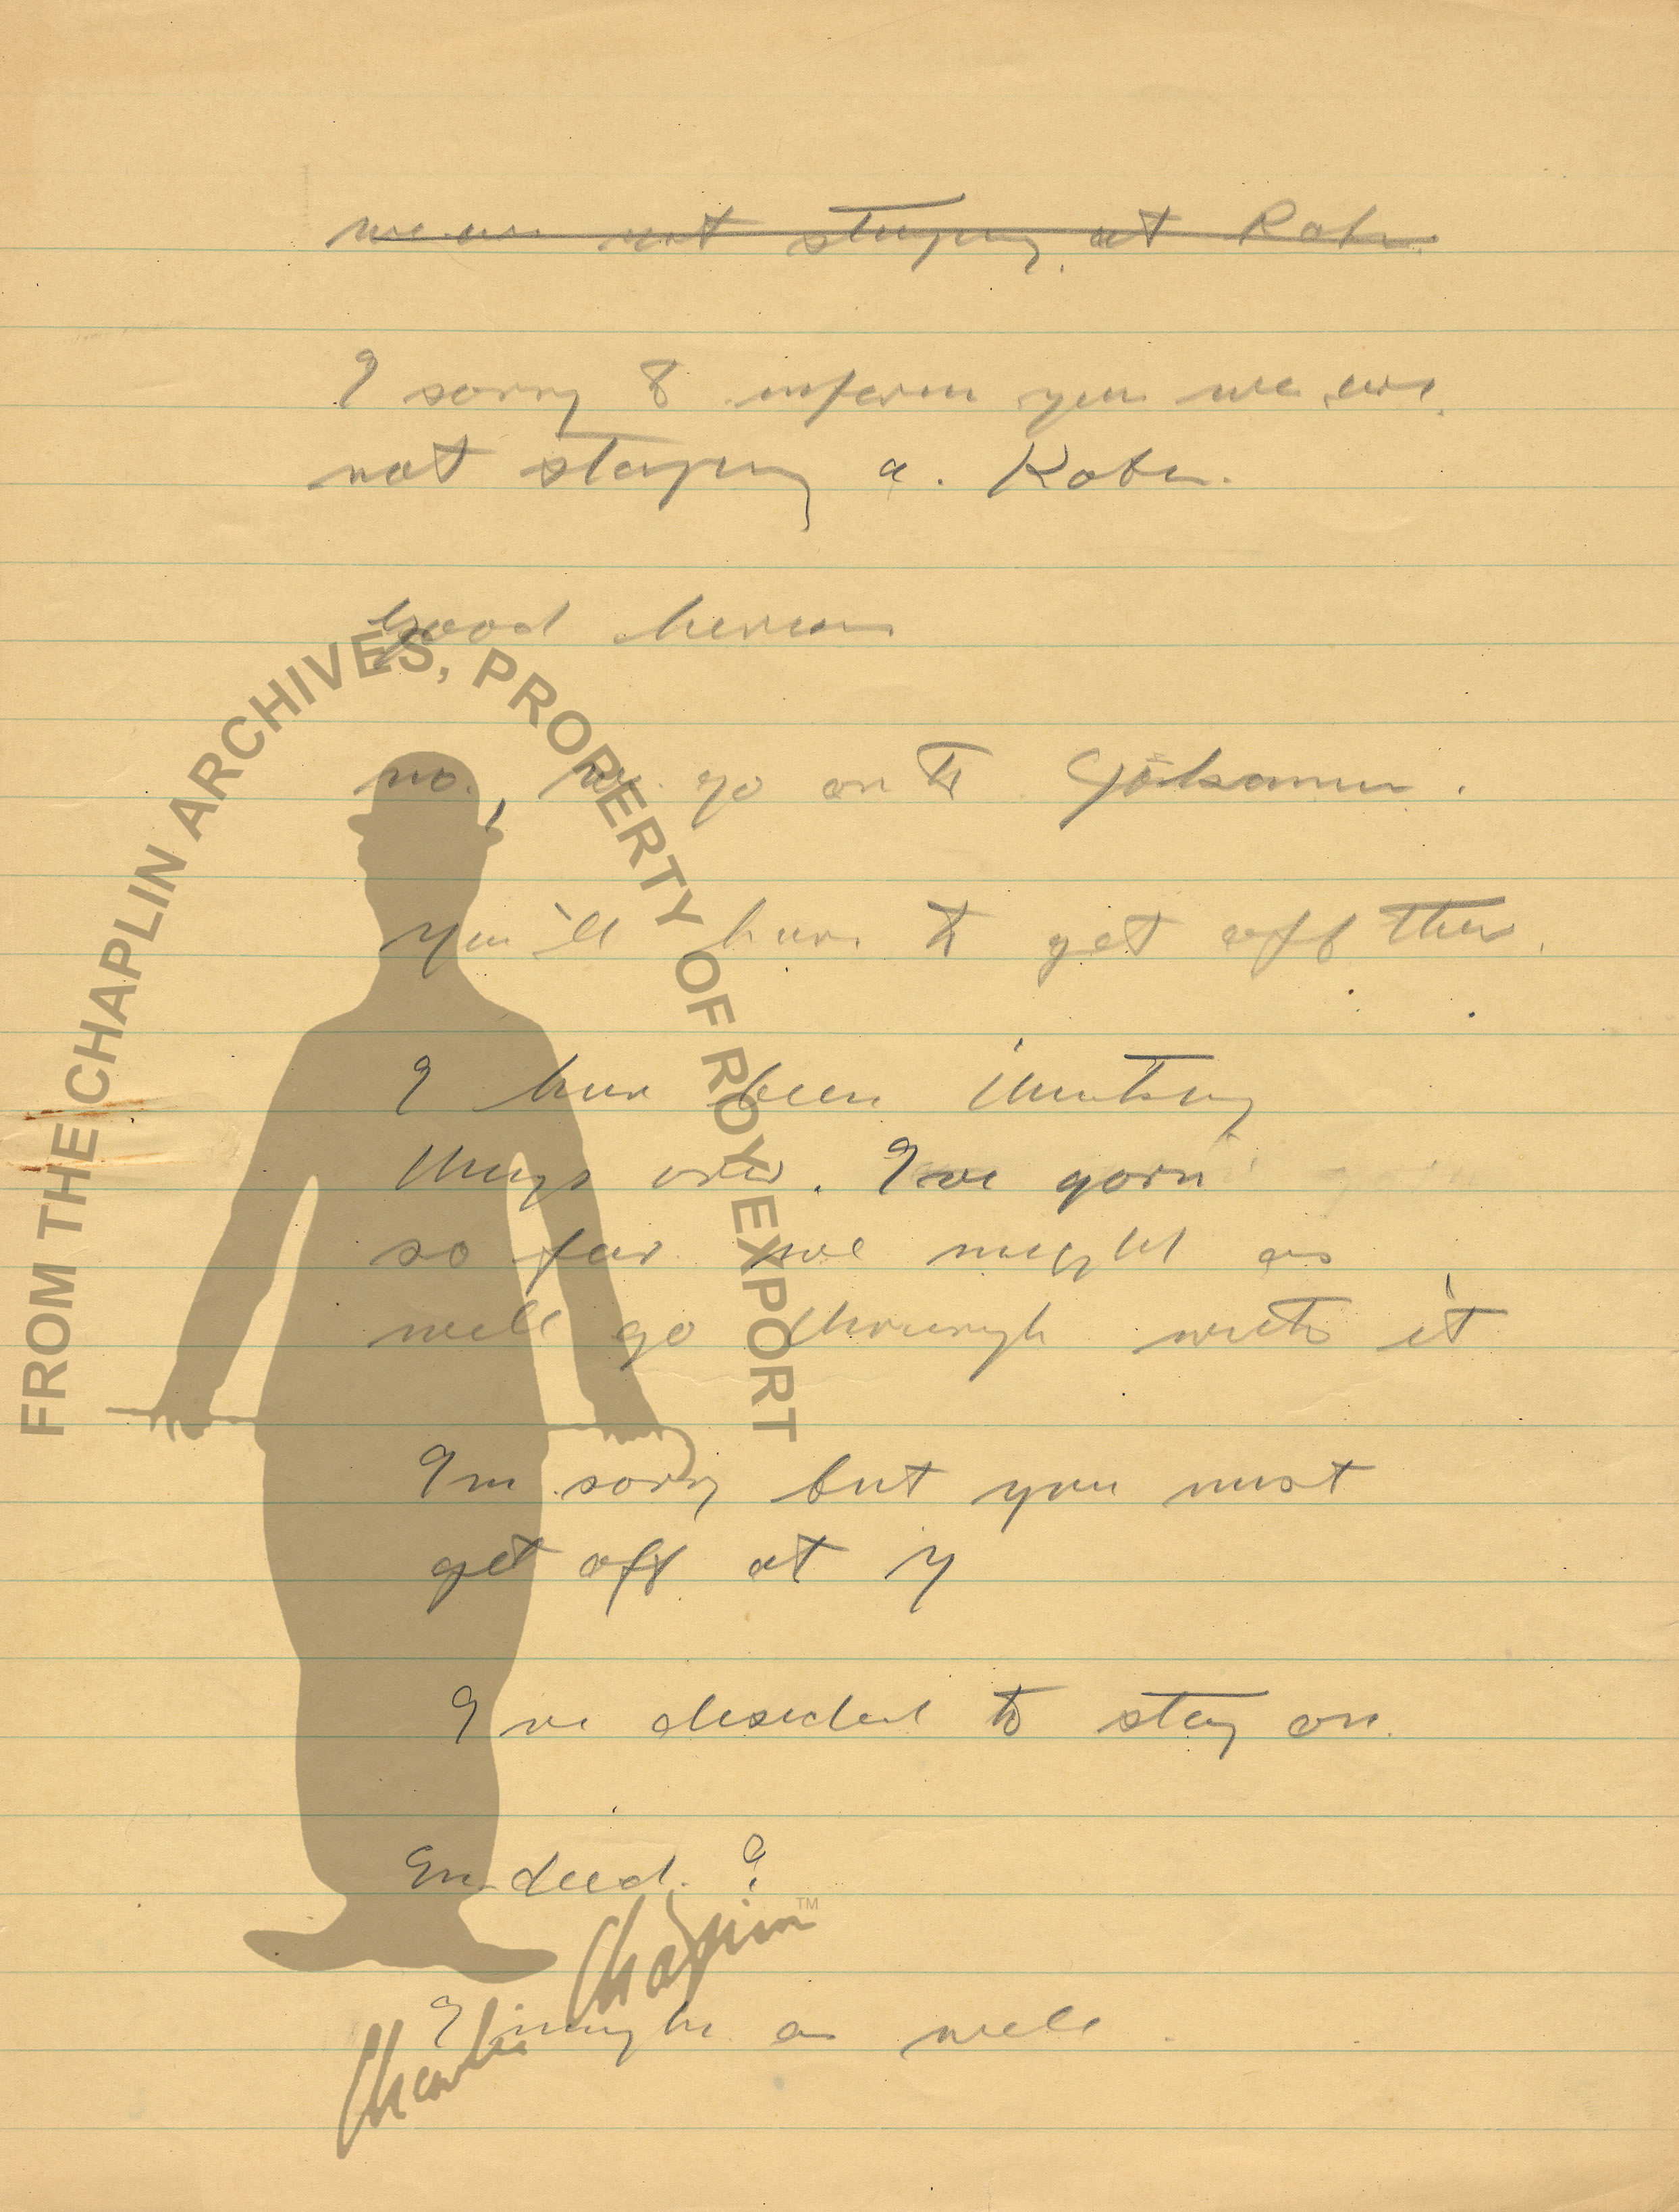 we are not staying at Kobe.
I sorry to inform you we are
not staying a. Kobe.
good heven
no, we go on to Yokamer.
you'll have to get off there.
I have been thinking
things over. I've gorn
so far we might as
well go through with it
I'm sorry but you must
get off at Y
I've desided to stay on.
In deed.?
I might as well.
FROM THE CHAPLIN ARCHIVES, PROPERTY OF ROY EXPORT
Charlie Chaplin TM